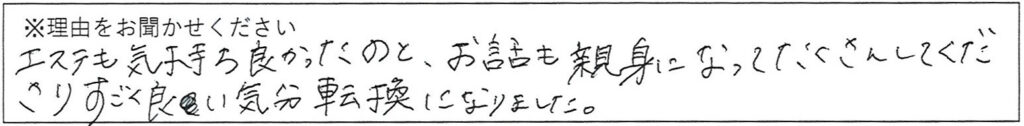 ※理由をお聞かせください
エステも気持ち良かったのと、お話も親身になってたくさんしてくだ
さりすごく良い気分転換になりました。